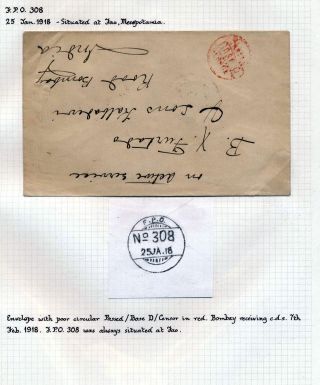 F.P.O. 308
25 Jan. 1918 - Situated at Fao, Mesopotamia.
on active service
B. X. Furtado
& Sons Kalbadevi
Road Bombay
India
F.P.O.
No 308
25JA.18
Envelope with poor circular Passed/Base D/Censor in red. Bombay receiving c.d.s. 7th
Feb. 1918. F.P.O. 308 was always situated at Fao.